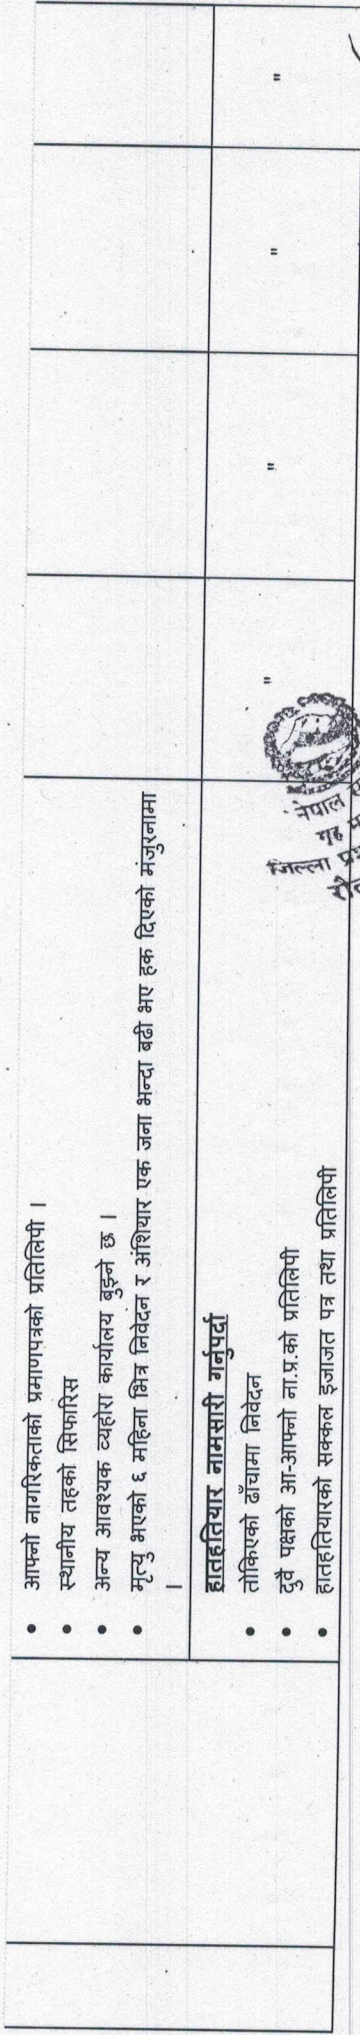 • आफ्नो नागरिकताको प्रमाणपत्रको प्रतिलिपी ।
• स्थानीय तहको सिफारिस
• अन्य आवश्यक व्यहोरा कार्यालय बुझ्ने छ ।
• मृत्यु भएको ६ महिना भित्र निवेदन र अंशियार एक जना भन्दा बढी भए हक दिएको मंजुरनामा
।
हातहतियार नामसारी गर्नुपर्दा
• तोकिएको ढाँचामा निवेदन
• दुवै पक्षको आ-आफ्नो ना.प्र.को प्रतिलिपी
• हातहतियारको सक्कल इजाजत पत्र तथा प्रतिलिपी
" " " "
नेपाल
गृह
जिल्ला